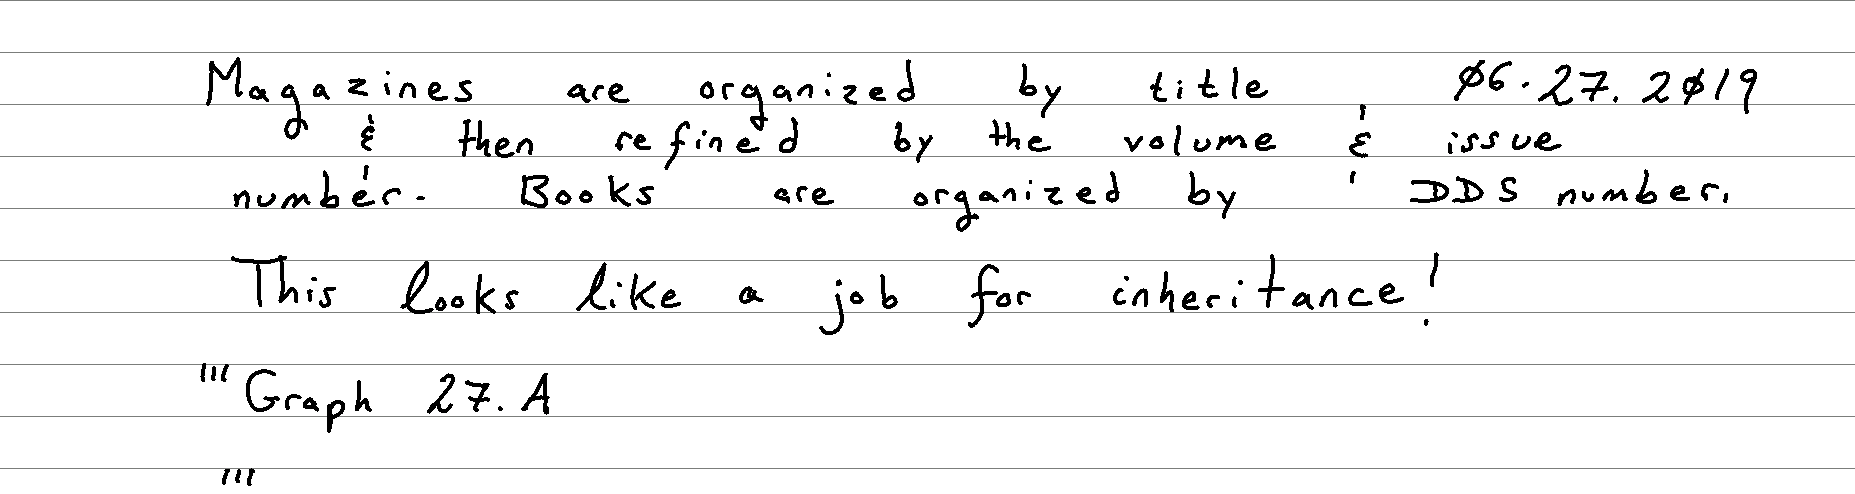 Magazines are organized by title 06.27.2019
& then refined by the volume & issue
number. Books are organized by DDS number.
This looks like a job for inheritance!
''' Graph 27.A
'''